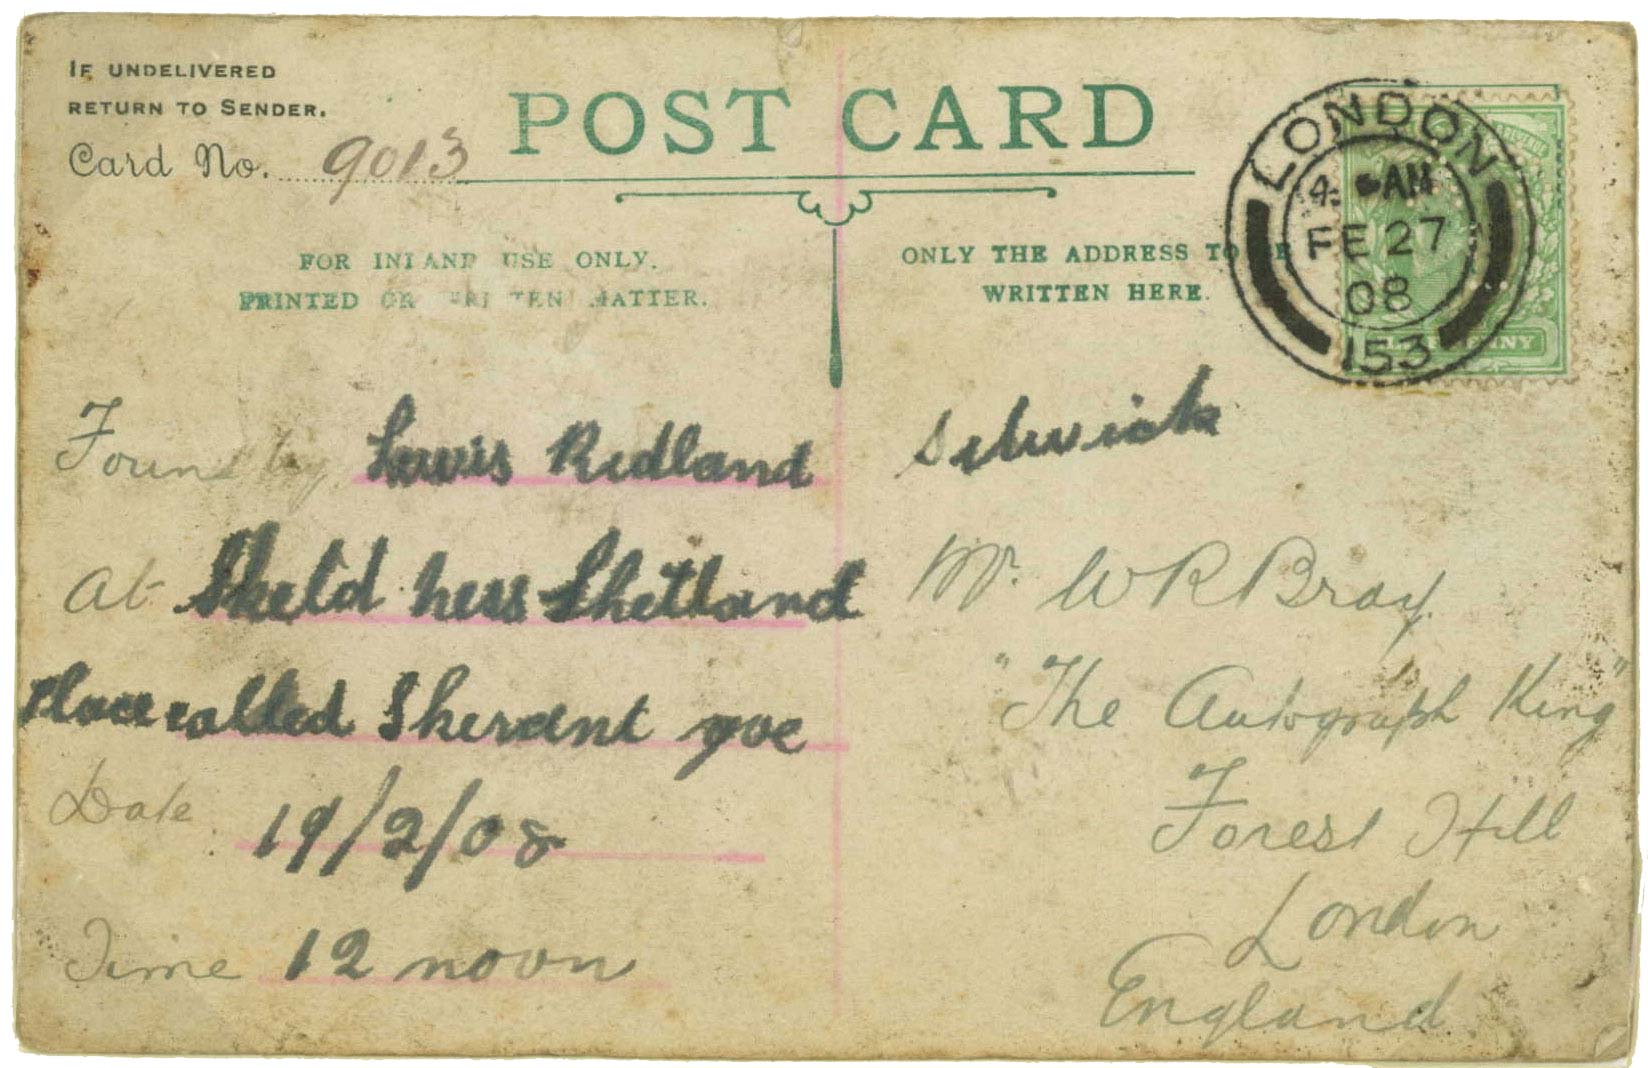 IF UNDELIVERED
RETURN TO SENDER.
Card No. 9013
POST CARD
LONDON
4. AM
FE 27
08
153
FOR INLAND USE ONLY.
PRINTED OR WRITTEN MATTER.
ONLY THE ADDRESS TO BE
WRITTEN HERE.
Found by Lewis Ridland
At Skeld ness Shetland
Place called Skerant goe
Date 19/2/08
Time 12 noon
Silwick
Mr. W R Bray
"The Autograph King"
Forest Hill
London
England